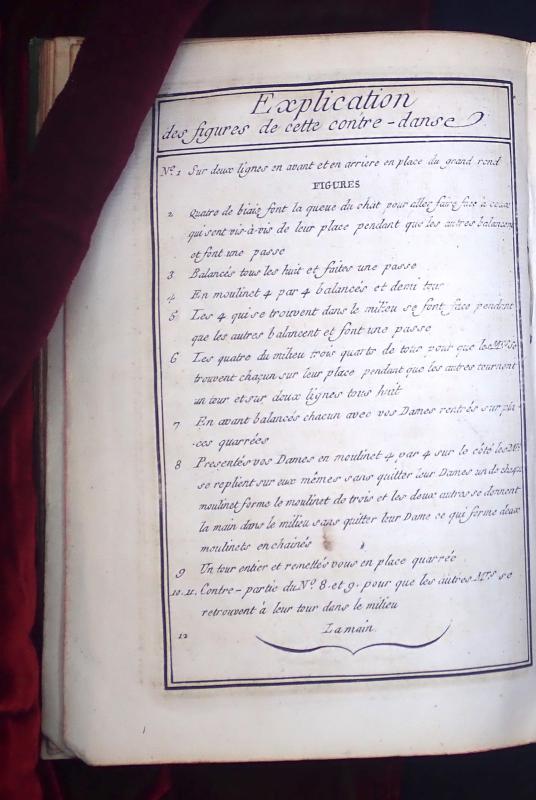 Explication
des figures de cette contre-danse
Nº. 1 Sur deux lignes en avant et en arriere en place du grand rond
FIGURES
2 Quatre de biaiz font la queue du chat pour aller faire face à ceux
qui sont vis-à-vis de leur place pendant que les autres balancent
et font une passe
3 Balancés tous les huit et faites une passe
4 En moulinet 4 par 4 balancés et demi tour
5 Les 4 qui se trouvent dans le milieu se font face pendant
que les autres balancent et font une passe
6 Les quatre du milieu trois quarts de tour pour que les Mrs. se
trouvent chaçun sur leur place pendant que les autres tournent
un tour et sur deux lignes tous huit
7 En avant balancés chacun avec vos Dames rentrés sur pla-
-ces quarrées
8 Presentés vos Dames en moulinet 4 par 4 sur le côté les Mrs.
se replient sur eux mêmes sans quitter leur Dames un de chaque
moulinet forme le moulinet de trois et les deux autres se donnent
la main dans le milieu sans quitter leur Dame ce qui forme deux
moulinets enchainés
9 Un tour entier et remettés vous en place quarrée
10. 11. Contre-partie du Nº 8. et 9. pour que les autres Mrs se
retrouvent à leur tour dans le milieu
12 La main